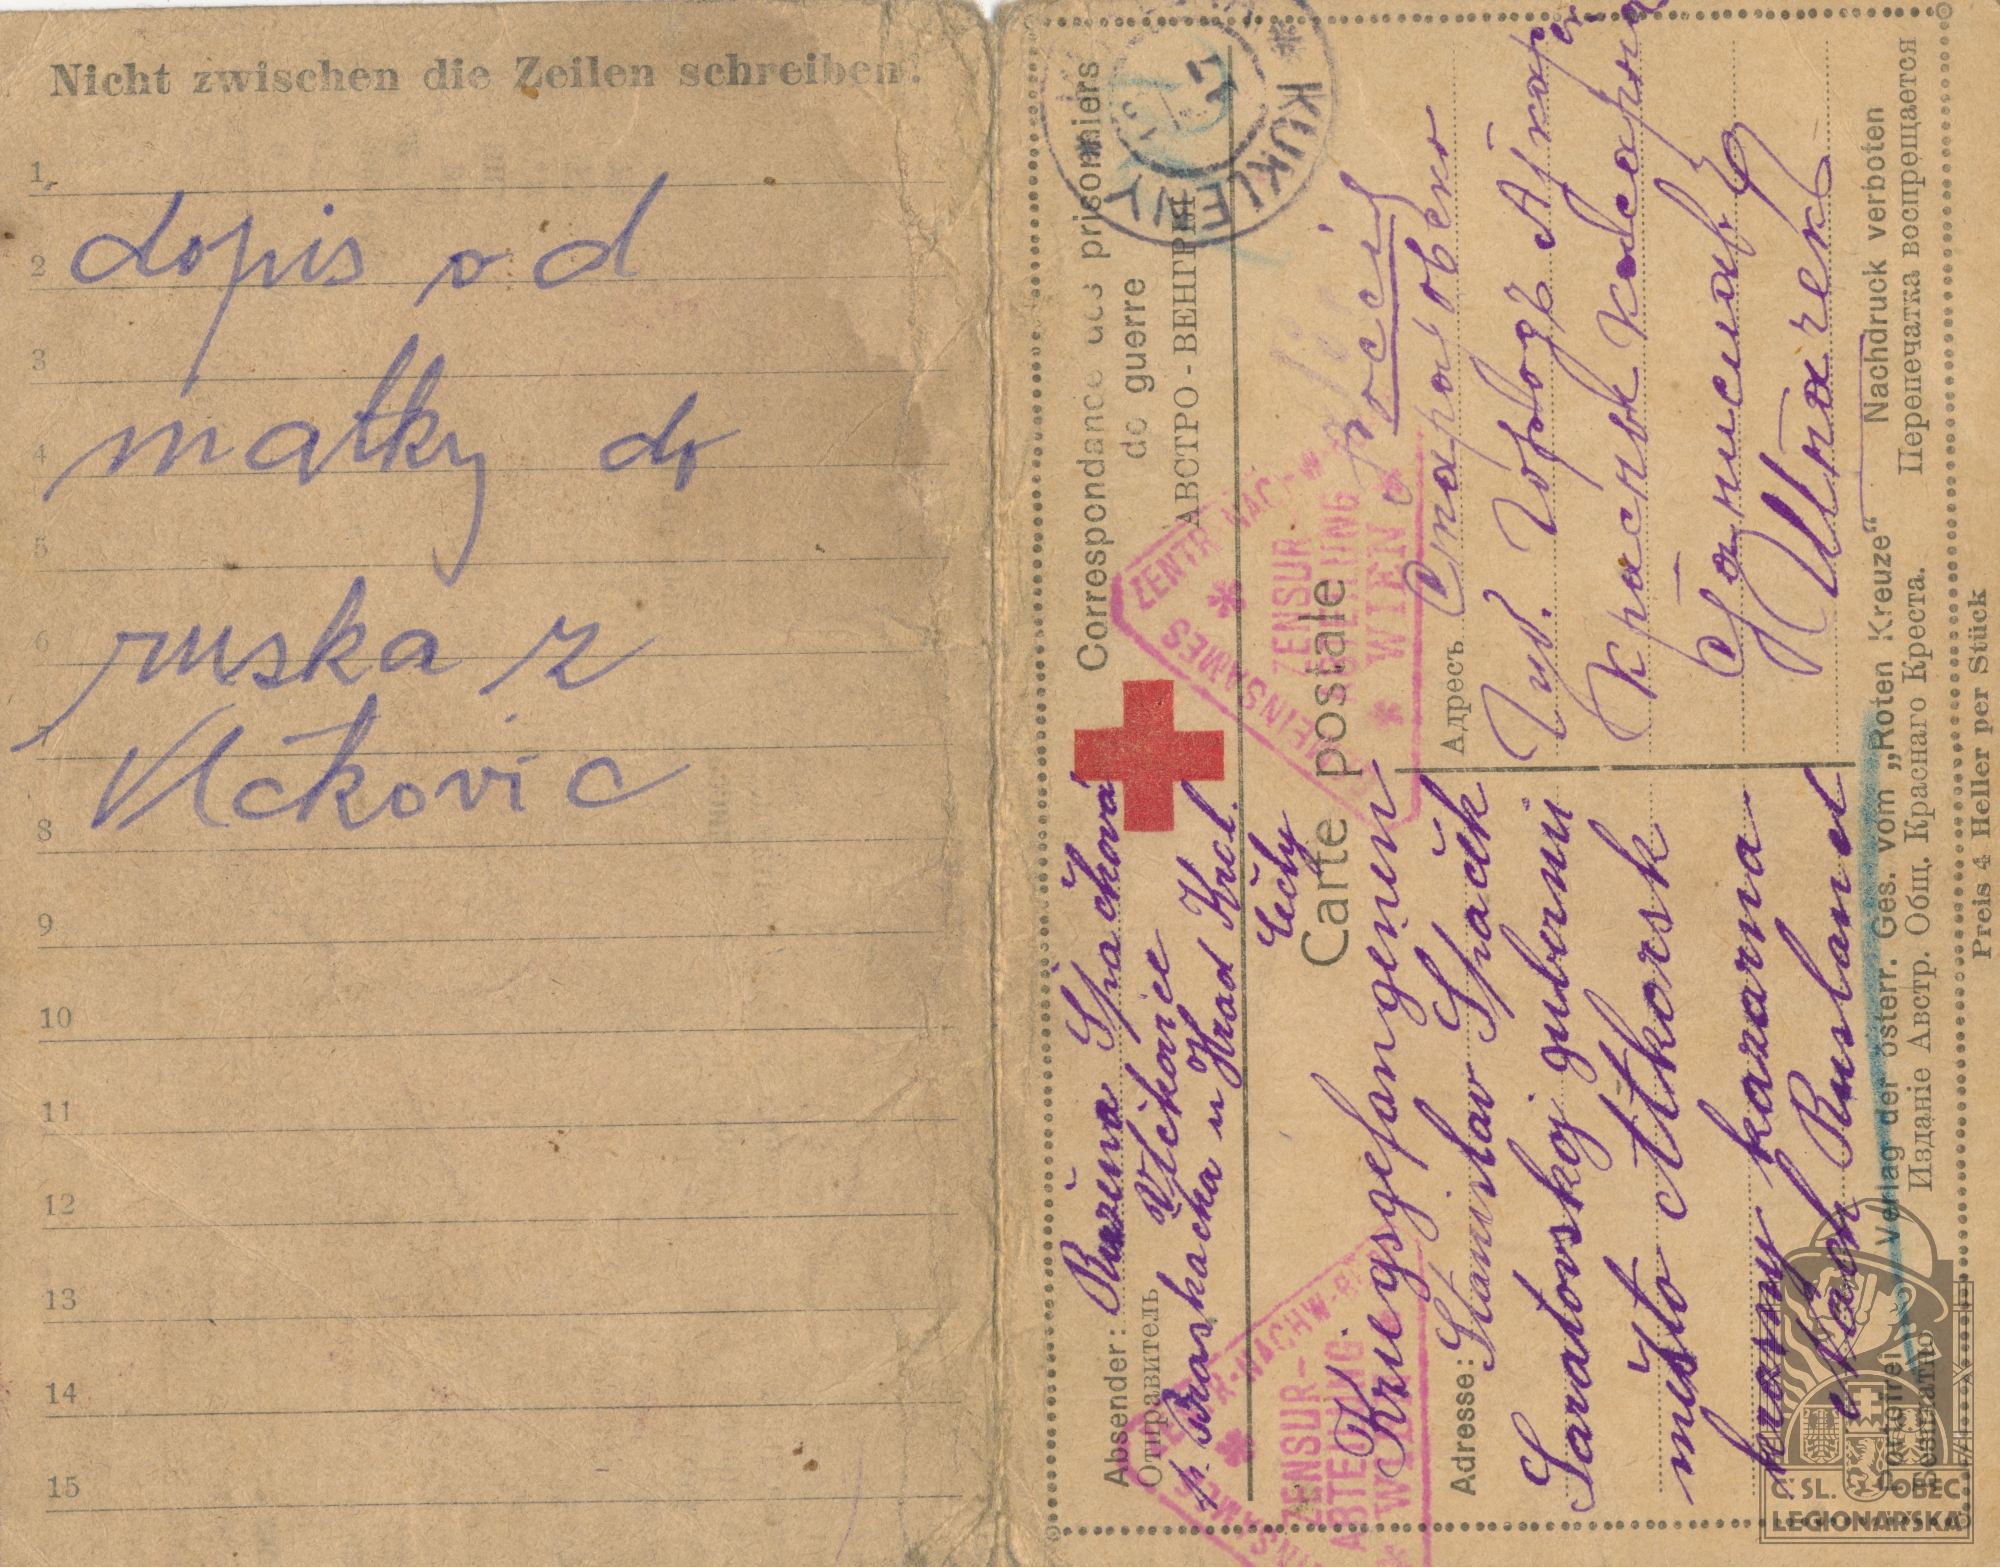 Nicht zwischen die Zeilen schreiben!
1
2
3
4
5
6
7
8
9
10
11
12
13
14
15
dopis od
matky do
ruska z
Vlčkovic
Correspondance des prisonniers
de guerre
АВСТРО-ВЕНГРІЯ
KUKLENY
Absender: Růžena Špačková
Отправитель
Vlčkovice
p. Praskačka u Hrad Král.
Čechy
Carte postale
ZENSUR-
ABTEILUNG
WIEN
ZENSUR
ABTEILUNG
WIEN
Kriegsgefangenen
Adresse: Stanislav Špaček
Saratovskoj gubernii
město Atkarsk
krasny kazarma
Russland
Адресъ
Губ. городъ Аткар
Станиславъ
Шпачекъ
Portofrei
Безплатно
Verlag der österr. Ges. vom „Roten Kreuze“ Nachdruck verboten
Изданіе Австр. Общ. Краснаго Креста. Перепечатка воспрещается
Preis 4 Heller per Stück
Č. SL. OBEC
LEGIONÁŘSKÁ